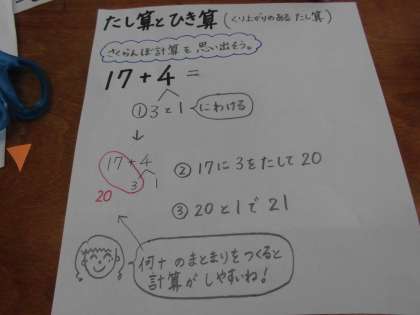 たし算とひき算(くり上がりのある たし算)
さくらんぼ計算を思い出そう。
17+4=
①3と1 にわける
↓
17+4
3 1
20
②17に3をたして20
③20と1で21
何十のまとまりをつくると
計算がしやすいね!